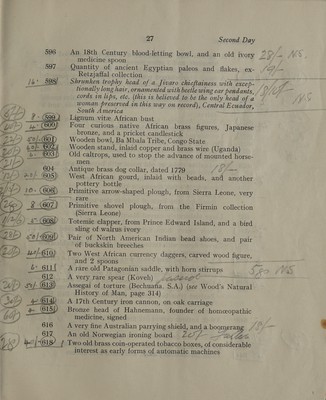 27 Second Day
596 An 18th Century blood-letting bowl, and an old ivory
medicine spoon
597 Quantity of ancient Egyptian paleos and flakes, ex-
Retajaffal collection
598 Shrunken trophy head of a Jivaro chieftainess with excep-
tionally long hair, ornamented with beetle wing ear pendants,
cords in lips, etc. (this is believed to be the only head of a
woman preserved in this way on record), Central Ecuador,
South America
599 Lignum vitæ African bust
600 Four curious native African brass figures, Japanese
bronze, and a pricked candlestick
601 Wooden bowl, Ba Mbala Tribe, Congo State
602 Wooden stand, inlaid copper and brass wire (Uganda)
603 Old caltrops, used to stop the advance of mounted horse-
men
604 Antique brass dog collar, dated 1779
605 West African gourd, inlaid with beads, and another
pottery bottle
606 Primitive arrow-shaped plough, from Sierra Leone, very
rare
607 Primitive shovel plough, from the Firmin collection
(Sierra Leone)
608 Totemic clapper, from Prince Edward Island, and a bird
sling of walrus ivory
609 Pair of North American Indian bead shoes, and pair
of buckskin breeches
610 Two West African currency daggers, carved wood figure,
and 2 spoons
611 A rare old Patagonian saddle, with horn stirrups
612 A very rare spear (Koveh)
613 Assegai of torture (Bechuana. S.A.) (see Wood's Natural
History of Man, page 314)
614 A 17th Century iron cannon, on oak carriage
615 Bronze head of Hahnemann, founder of homœopathic
medicine, signed
616 A very fine Australian parrying shield, and a boomerang
617 An old Norwegian ironing board
618 Two old brass coin-operated tobacco boxes, of considerable
interest as early forms of automatic machines